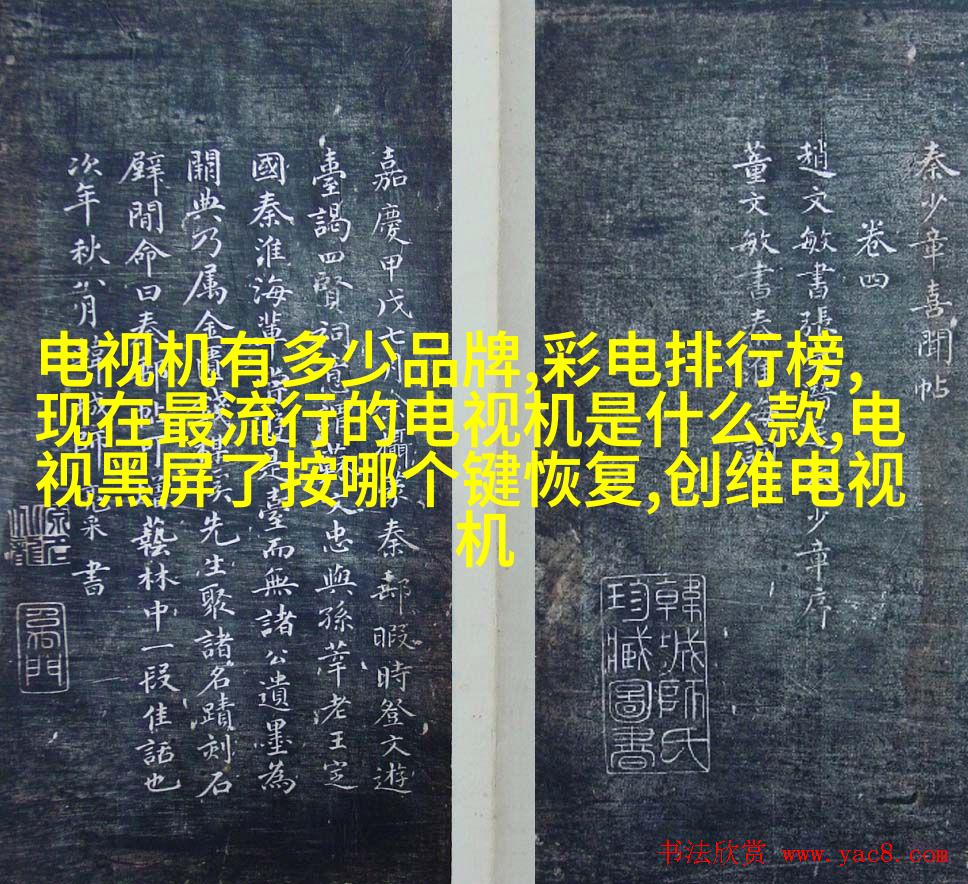 电视机有多少品牌,彩电排行榜,
现在最流行的电视机是什么款,电
视黑屏了按哪个键恢复,创维电视
机
秦少章喜聞帖
卷四
趙文敏書張
董文敏書秦淮海
少章序
韓城師氏
珍臧圖書
嘉慶甲戊七
臺謁四賢詞
文忠與孫莘老王定
國秦淮海
是臺而無諸公遺墨為
闕典乃属金匱錢
先生聚諸名蹟刻石
壁間命曰秦郵帖
藝林中一段佳話也
次年秋八月韓城師
書
秦郵暇時登文遊
书法欣赏 www.yac8.com